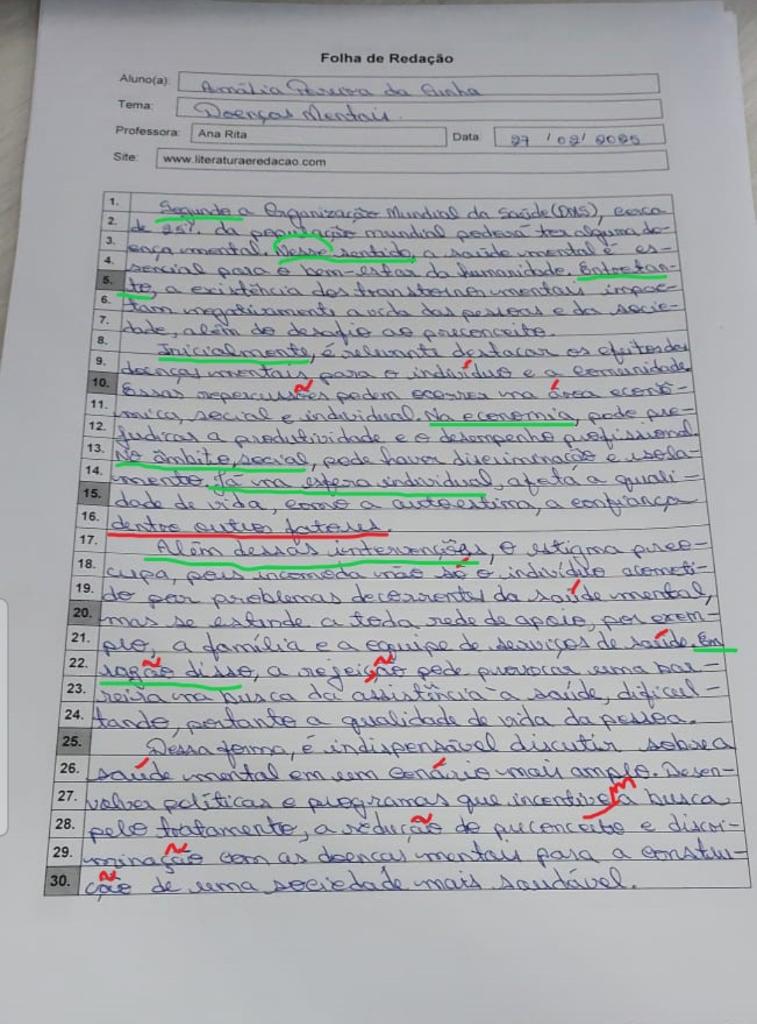 Folha de Redação
Aluno(a): Amália Pereira da Cunha
Tema: Doenças Mentais.
Professora: Ana Rita Data: 27 / 02 / 2025
Site: www.literaturaeredacao.com
1. Segundo a Organização Mundial da Saúde (OMS), cerca
2. de 25% da população mundial poderá ter alguma do-
3. ença mental. Nesse sentido, a saúde mental é es-
4. sencial para o bem-estar da humanidade. Entretan-
5. to, a existência dos transtornos mentais impac-
6. tam negativamente a vida das pessoas e da socie-
7. dade, além do desafio ao preconceito.
8. Inicialmente, é relevante destacar os efeitos das
9. doenças mentais para o indivíduo e a comunidade
10. Essas repercussões podem ocorrer na área econô-
11. mica, social e individual. Na economia, pode pre-
12. judicar a produtividade e o desempenho profissional.
13. No âmbito social, pode haver discriminação e isola-
14. mento. Já na esfera individual, afeta a quali-
15. dade de vida, como a autoestima, a confiança
16. dentre outros fatores.
17. Além dessas intervenções, o estigma preo-
18. cupa, pois incomoda não só o indivíduo acometi-
19. do por problemas decorrentes da saúde mental,
20. mas se estende a toda rede de apoio, por exem-
21. plo, a família e a equipe de serviços de saúde. Em
22. razão disso, a rejeição pode provocar uma bar-
23. reira na busca da assistência à saúde, dificul-
24. tando, portanto a qualidade de vida da pessoa.
25. Dessa forma, é indispensável discutir sobre a
26. saúde mental em um cenário mais amplo. Desen-
27. volver políticas e programas que incentivem a busca
28. pelo tratamento, a redução do preconceito e discri-
29. minação com as doenças mentais para a constru-
30. ção de uma sociedade mais saudável.